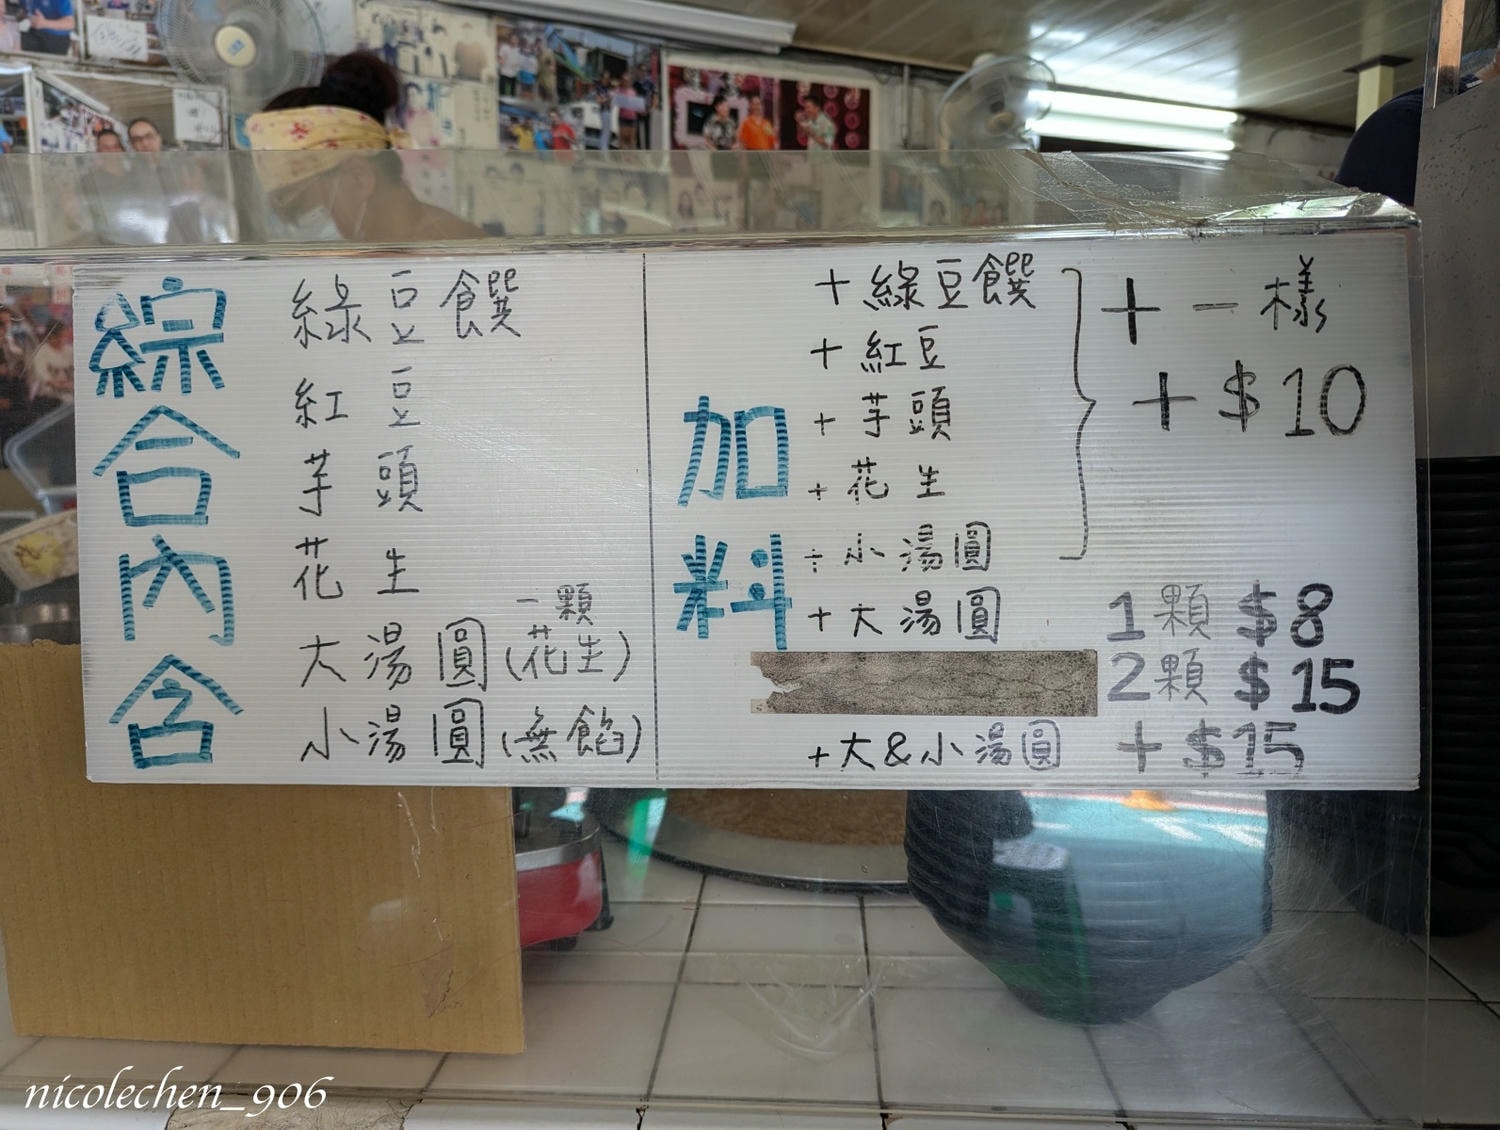 綜合內含
綠豆饌
紅豆
芋頭
花生
大湯圓(一顆花生)
小湯圓(無餡)
加料
+綠豆饌
+紅豆
+芋頭
+花生
+小湯圓
+一樣
+$10
+大湯圓 1顆 $8
2顆 $15
+大&小湯圓 +$15
nicolechen_906